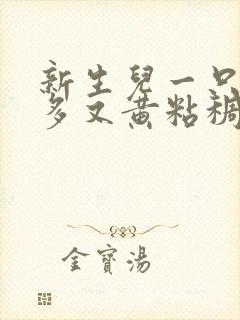 新生兒一口
多又黄粘稠
金寶湯